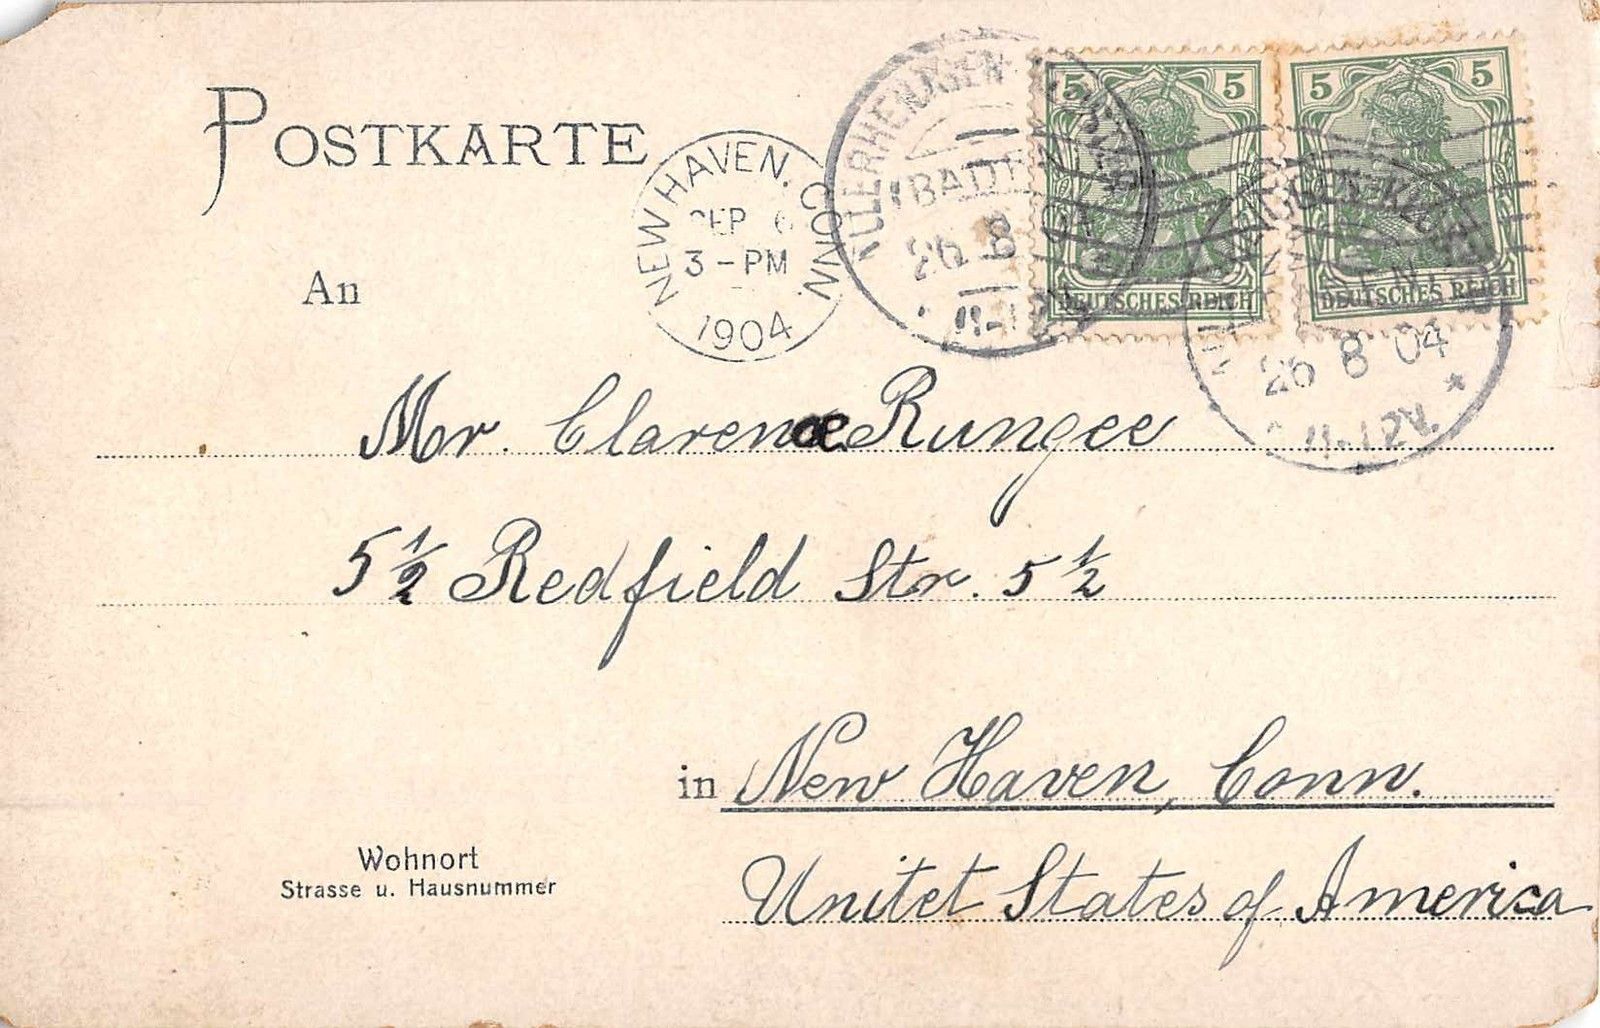 POSTKARTE
NEW HAVEN, CONN.
SEP 6
3-PM
1904
(BADEN)
26 8 04
11-12V.
5 5
DEUTSCHES REICH
5 5
DEUTSCHES REICH
26 8 04
* 11-12V. *
An
Mr. Clarence Rungee
5 1/2 Redfield Str. 5 1/2
in New Haven, Conn.
Unitet States of America
Wohnort
Strasse u. Hausnummer